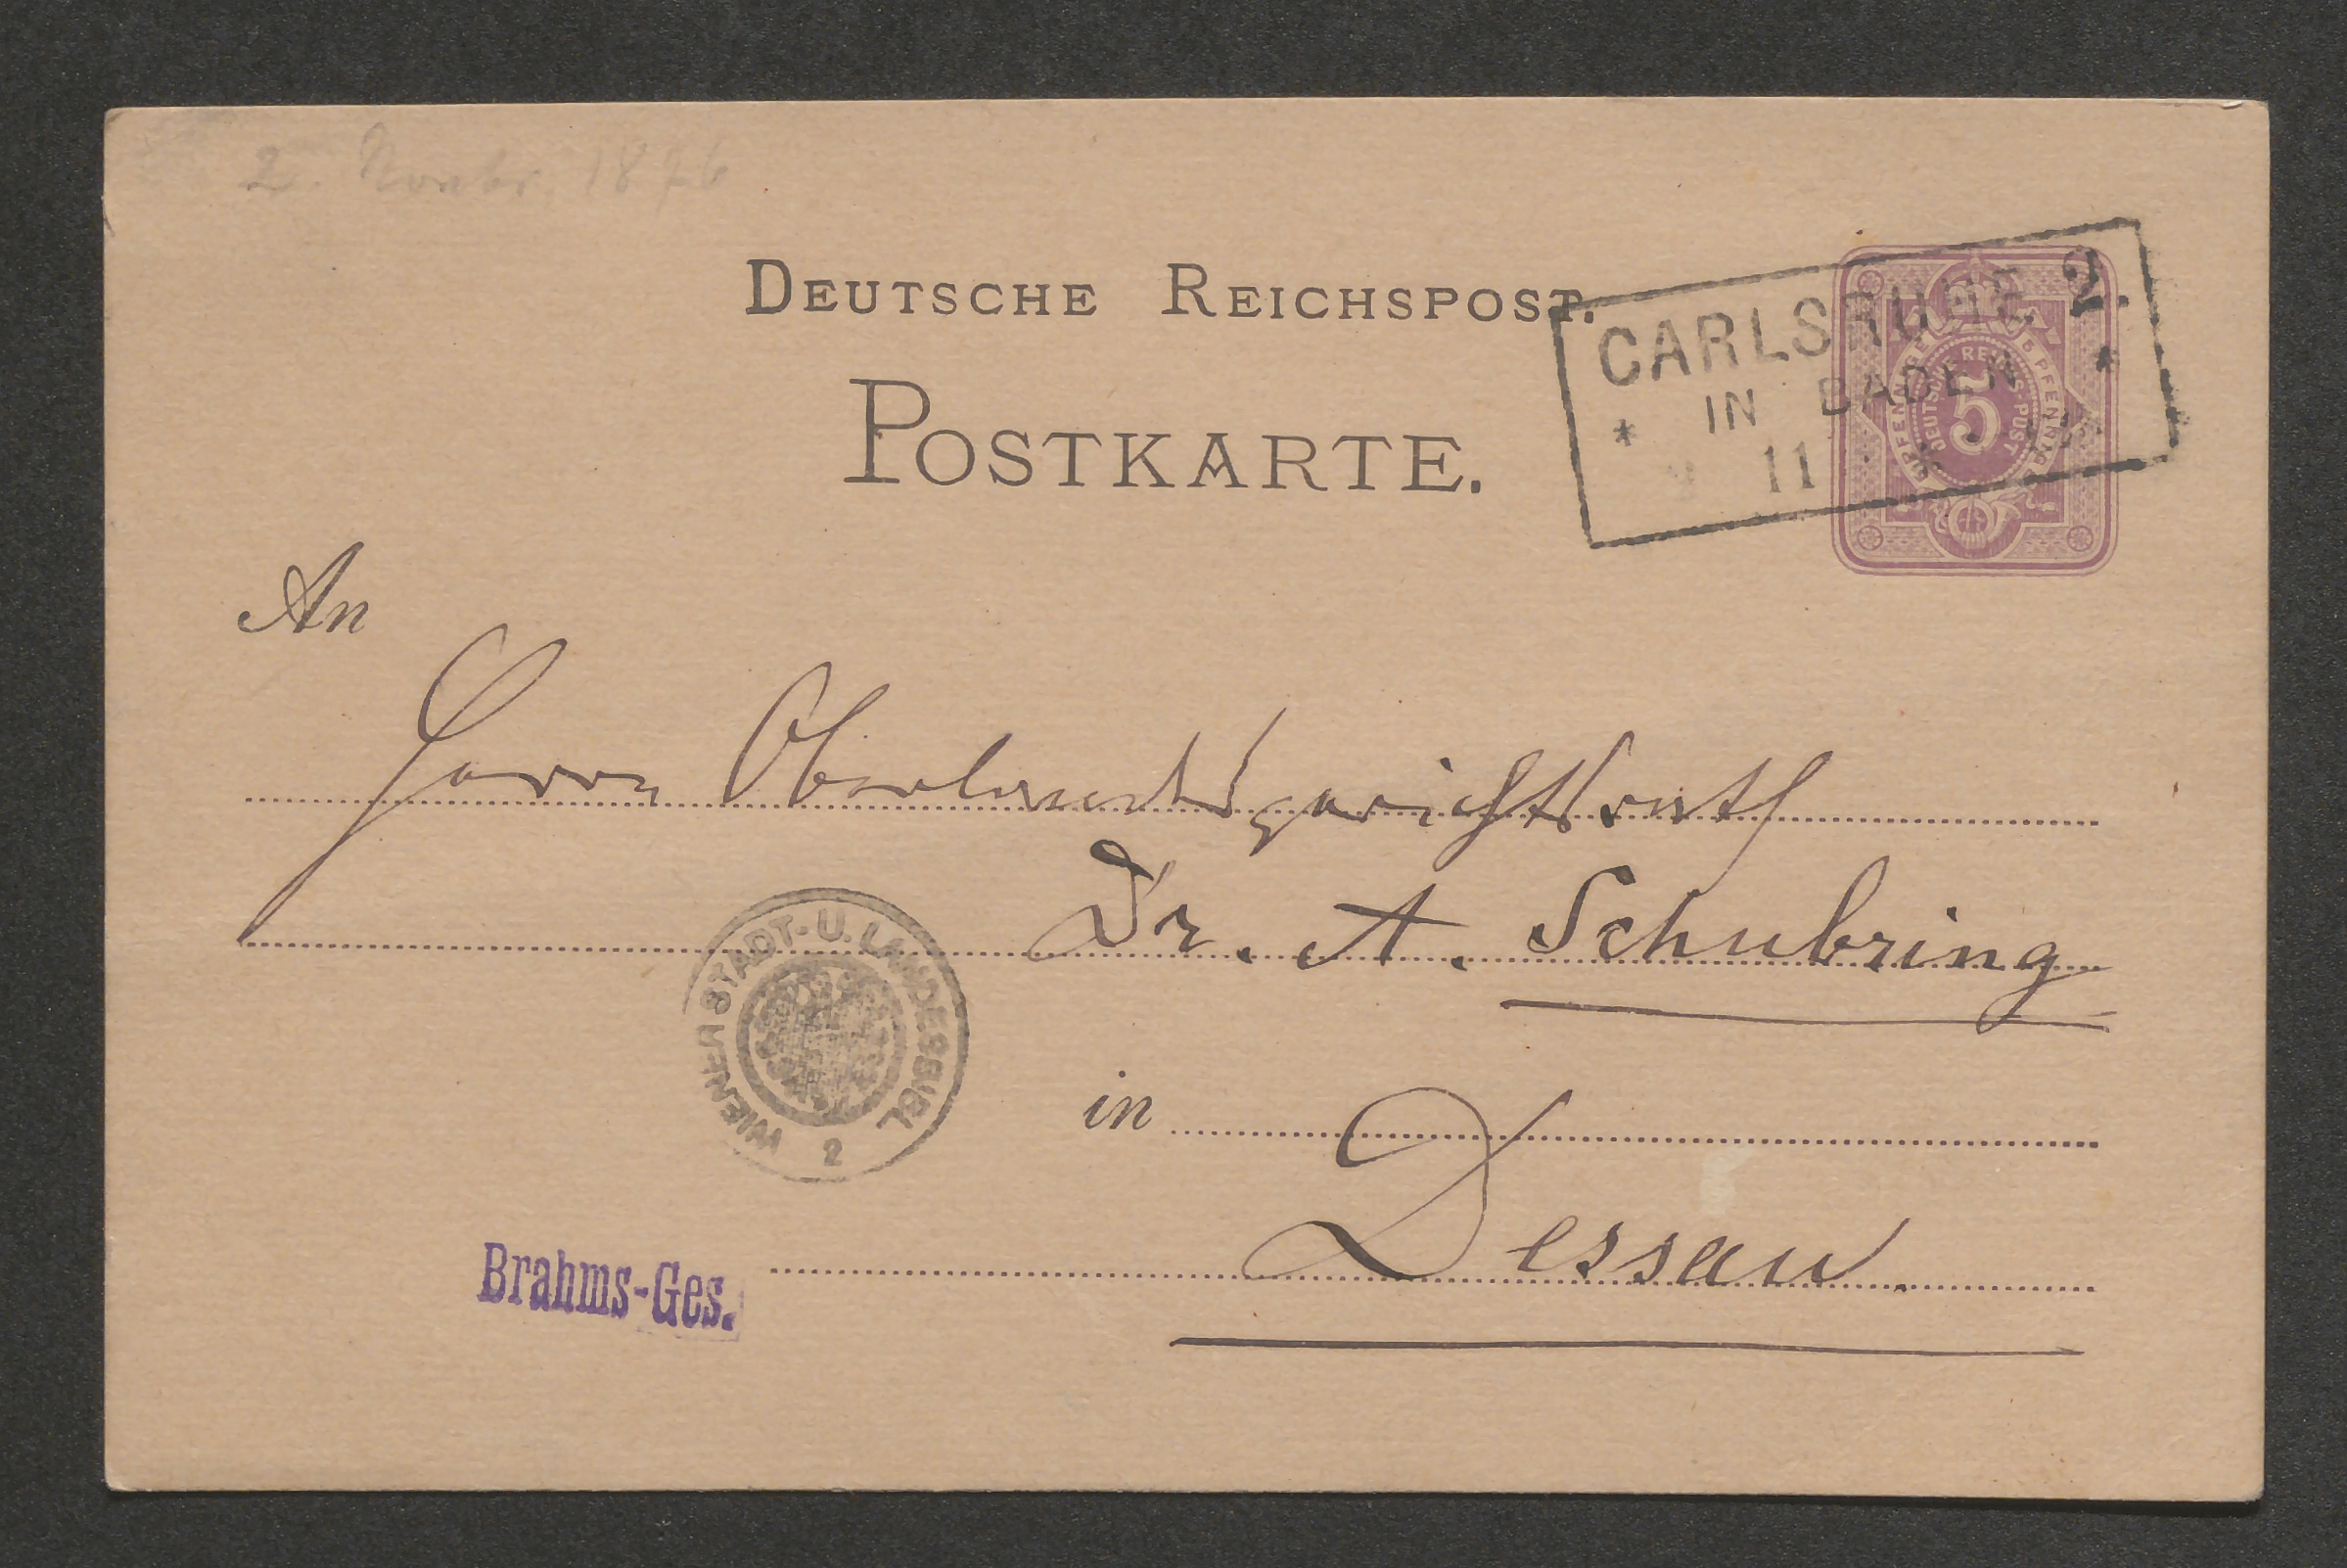 2. Novbr. 1876
DEUTSCHE REICHSPOST.
POSTKARTE.
CARLSRUHE 2.
* IN BADEN *
11
5 PFENNIG 5 PFENNIG
DEUTSCHE REICHS-POST
5
An
Herrn Oberlandsgerichtsrath
Dr. A. Schubring
in
Dessau.
WIENER STADT-U. LANDESBIBL.
2
Brahms-Ges.